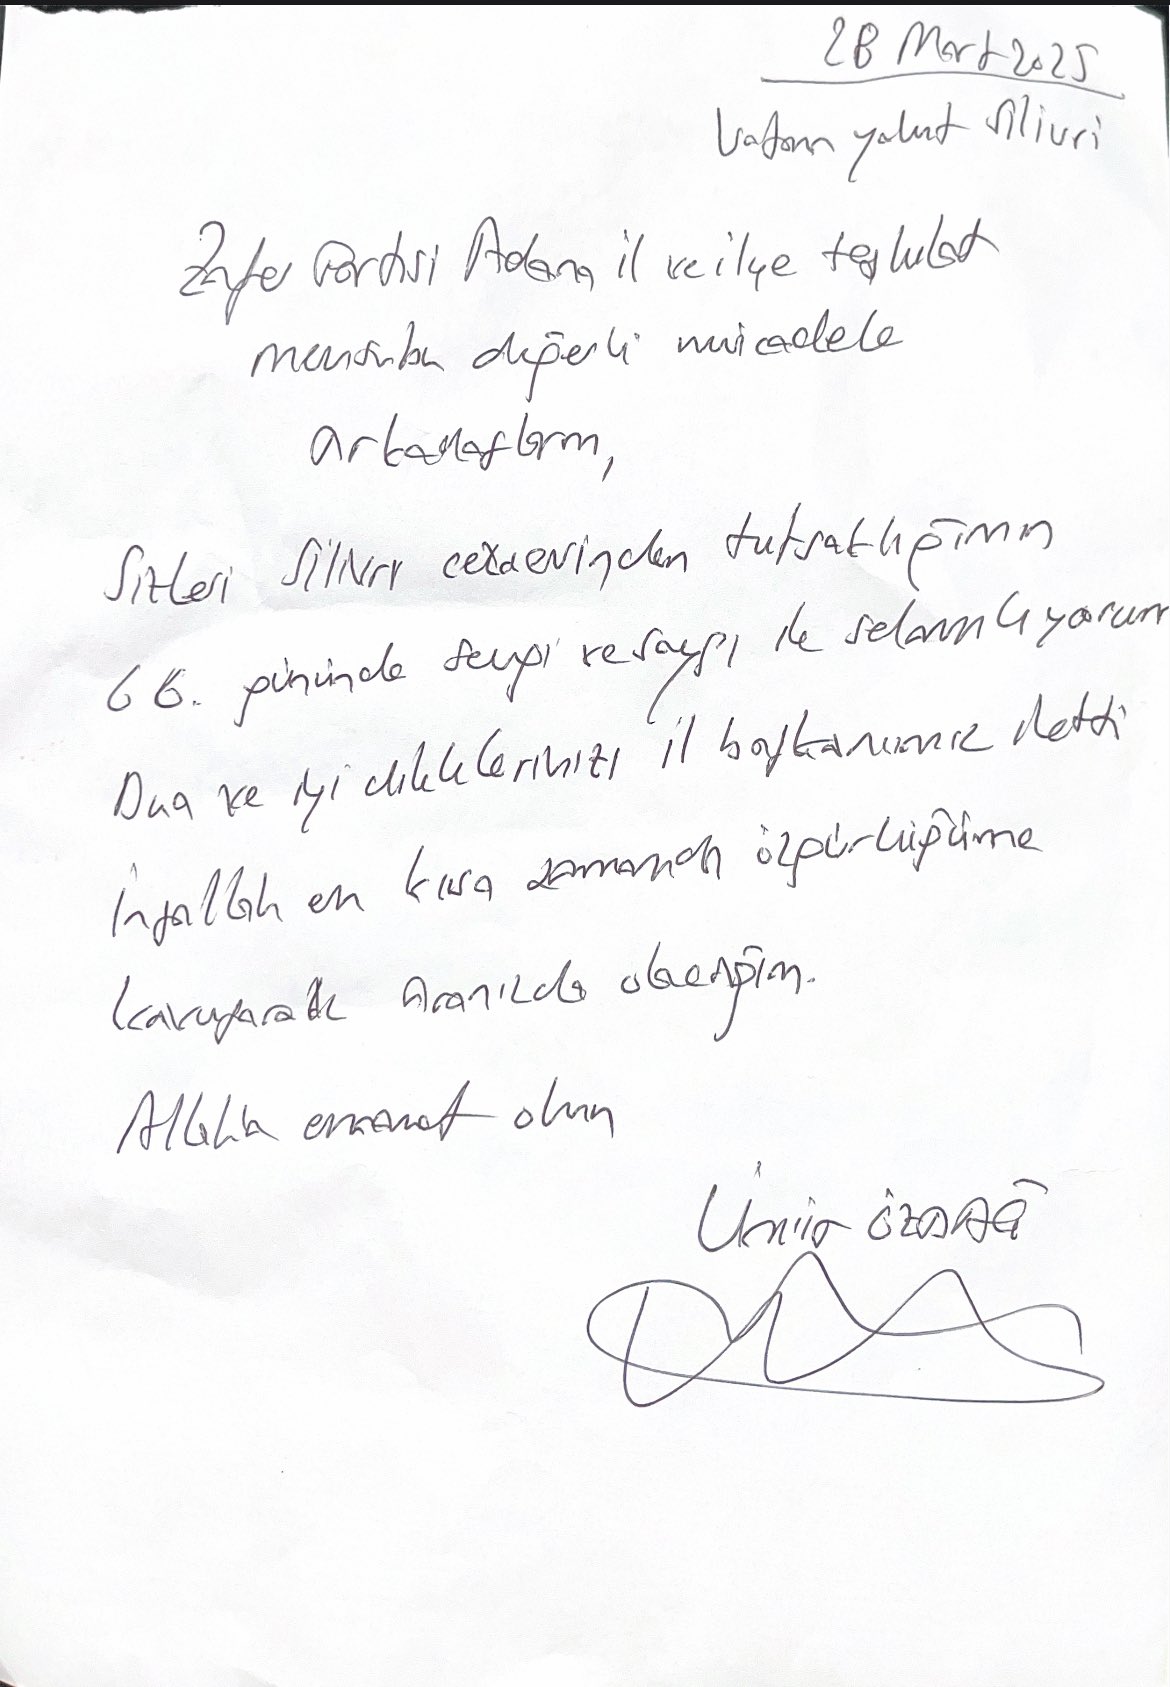 28 Mart 2025
Vatan yahut Silivri
Zafer Partisi Adana il ve ilçe teşkilat
mensubu değerli mücadele
arkadaşlarım,
Sizleri Silivri cezaevinden tutsaklığımın
66. gününde sevgi ve saygı ile selamlıyorum
Dua ve iyi dileklerinizi il başkanımız iletti
İnşallah en kısa zamanda özgürlüğüme
kavuşarak aranızda olacağım.
Allaha emanet olun
Ümit ÖZDAĞ